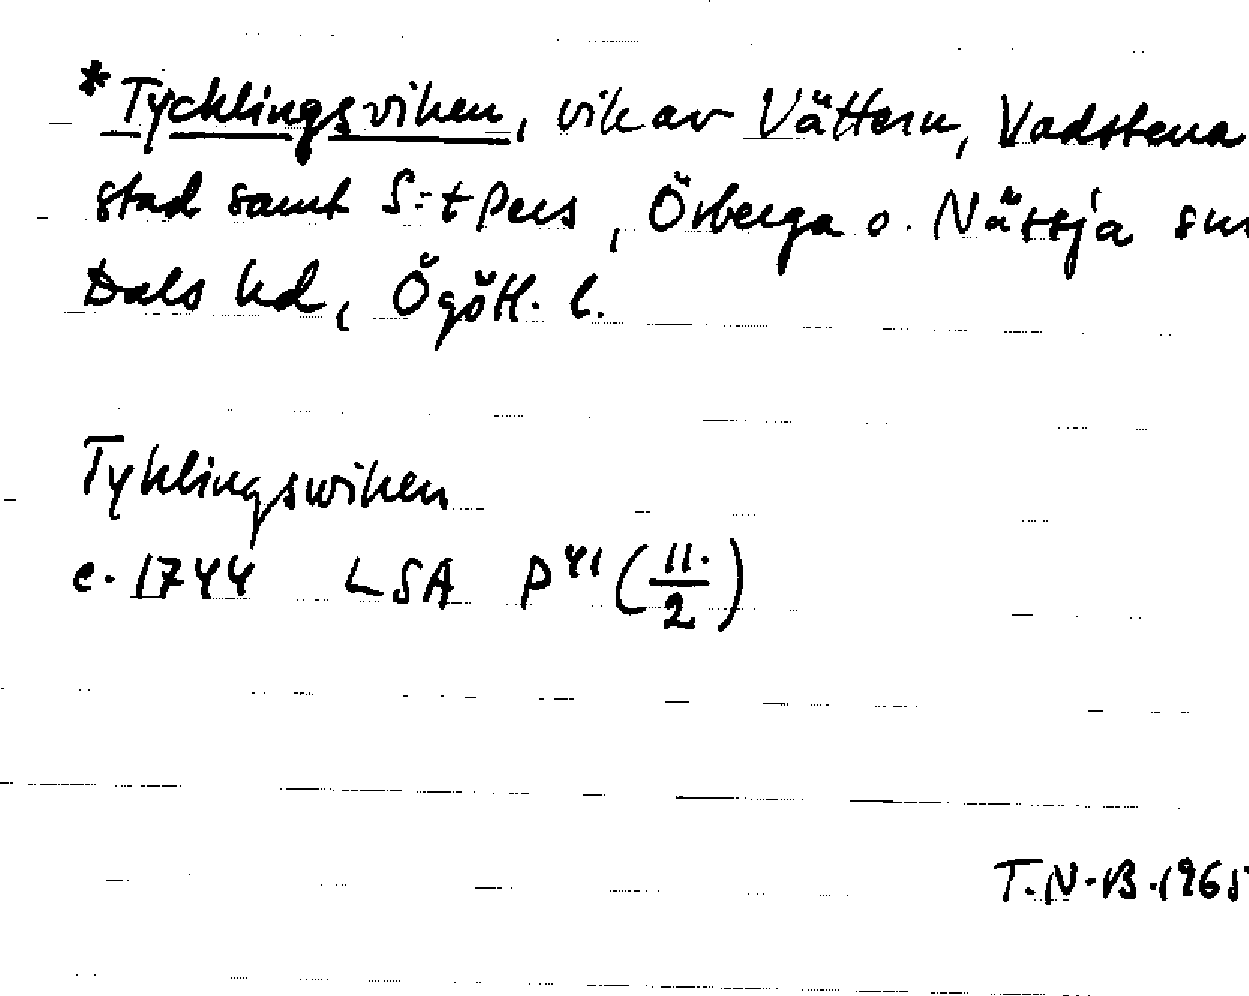 *Tycklingsviken, vik av Vättern, Vadstena
stad samt S:t Pers, Örberga o. Nässja snr
Dals hd, Ögötl. l.
Tyklingswiken
c. 1744 LSA P 41 (11./2)
T.N-B. 1965